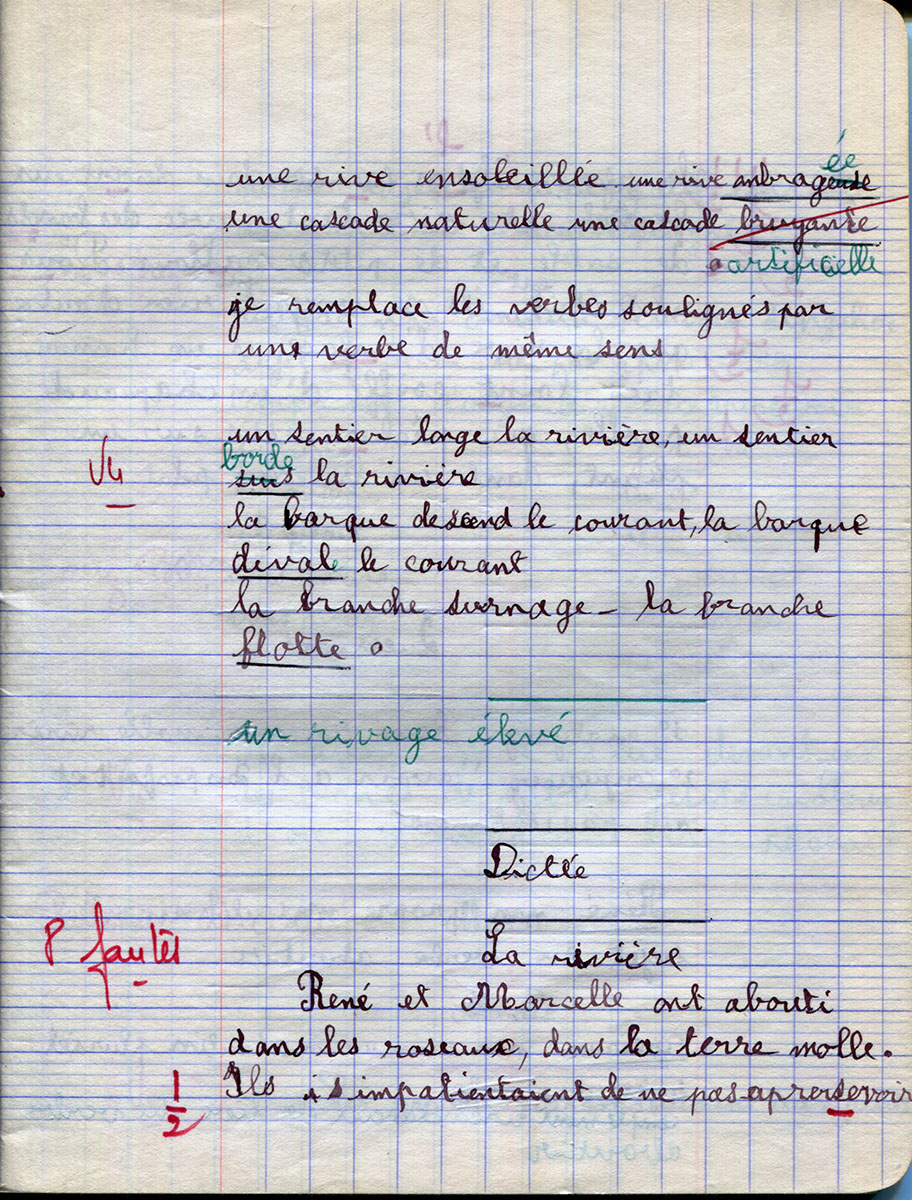 ée
une rive ensoleillée une rive ombrageuse
une cascade naturelle une cascade bruyante
artificielle
je remplace les verbes soulignés par
un verbe de même sens
un sentier longe la rivière, un sentier
borde
suis la rivière
V4
la barque descend le courant, la barque
déval le courant
la branche surnage - la branche
flotte.
un rivage élevé
Dictée
8 fautes
La rivière
René et Marcelle ont abouti
dans les roseaux, dans la terre molle.
1/2
Ils s impatientaient de ne pas aprersevoir